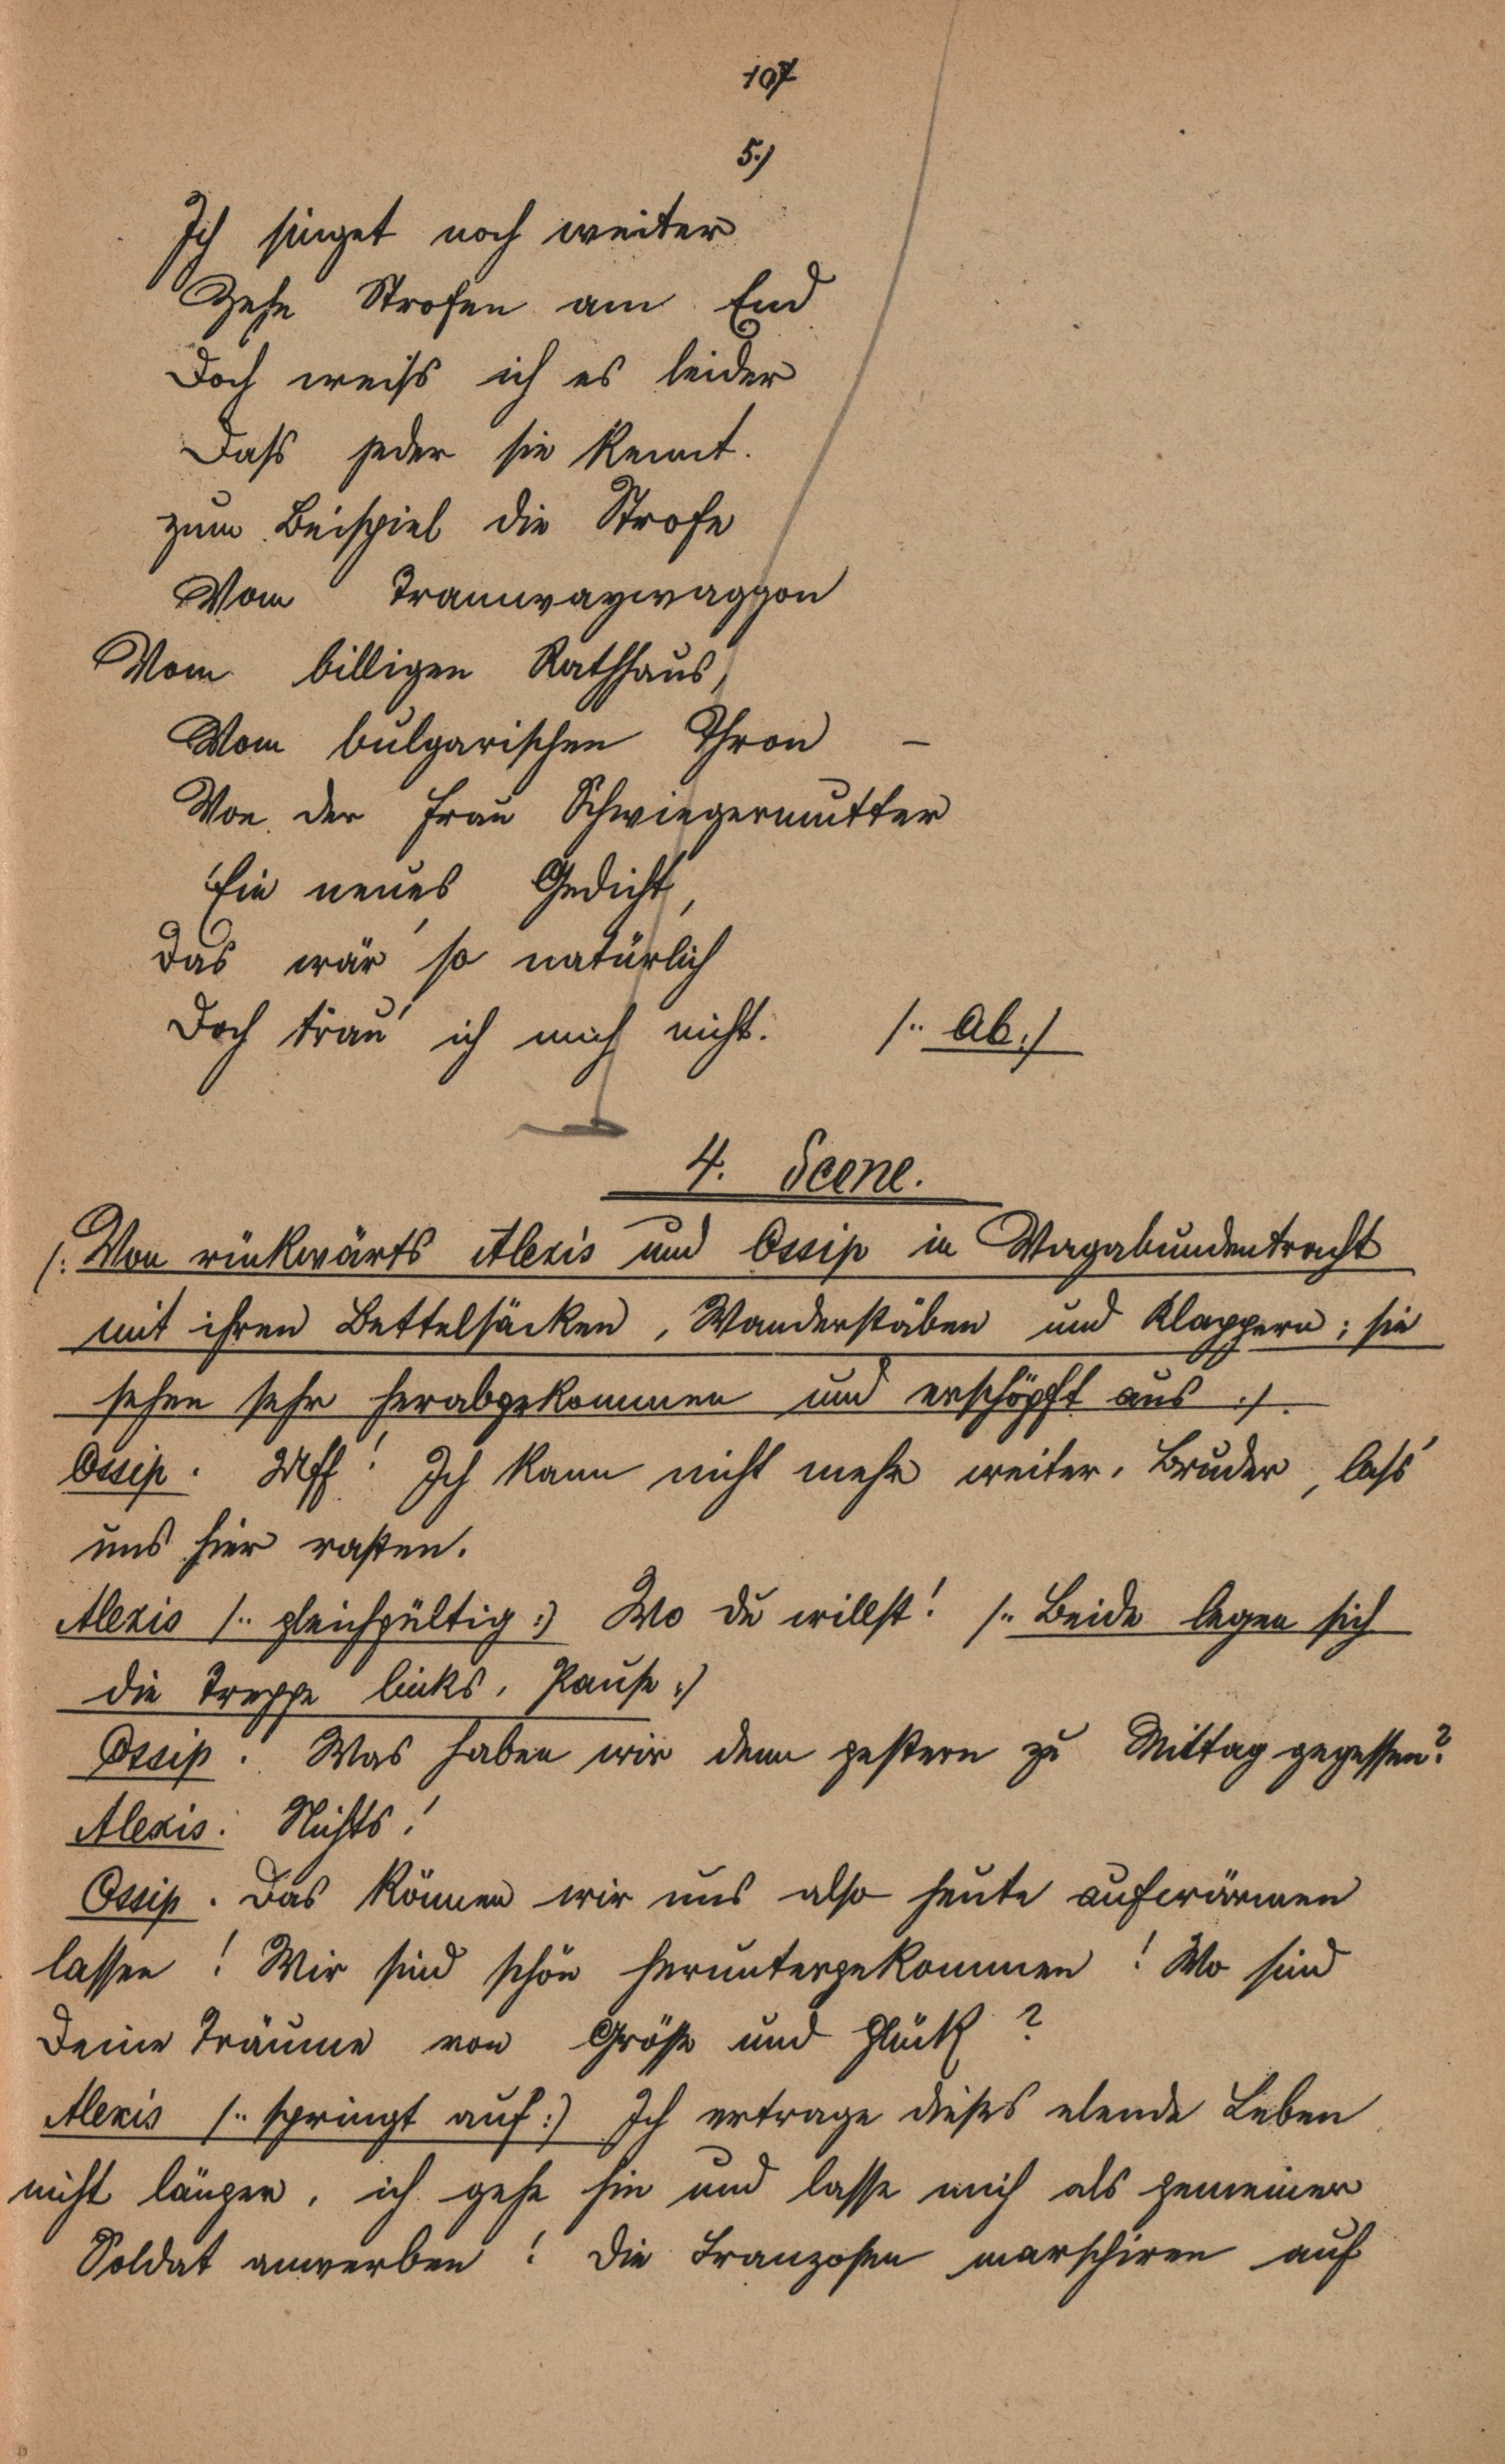 107
5.)
Ich singet noch weiter
Zehn Strofen am End
Doch weiss ich es leider
Dass jeder sie kennt.
zum Beispiel die Strofe
Vom Tramwaywaggon
Vom billigen Rathhaus,
Vom bulgarischen Thron –
Von der Frau Schwiegermutter
Ein neues Gedicht,
Das wär' so natürlich
Doch trau' ich mich nicht. /: Ab :/
4. Scene.
/: Von rückwärts Alexis und Ossip in Vagabundentracht
mit ihren Bettelsäcken, Wanderstäben und Klappern; sie
sehen sehr herabgekommen und erschöpft aus :/.
Ossip. Uff! Ich kann nicht mehr weiter, Bruder, lass'
uns hier rasten.
Alexis /: gleichgültig :/ Wo du willst! /: Beide legen sich
die Treppe links, Pause :/
Ossip: Was haben wir denn gestern zu Mittag gegessen?
Alexis: Nichts!
Ossip. Das können wir uns also heute aufwärmen
lassen! Wir sind schön heruntergekommen! Wo sind
Deine Träume von Grösse und Glück?
Alexis /: springt auf :/ Ich ertrage dieses elende Leben
nicht länger, ich gehe hin und lasse mich als gemeiner
Soldat anwerben! Die Franzosen marschiren auf